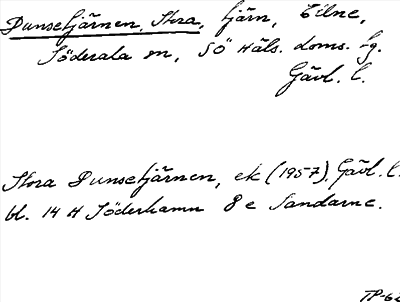 Dunsetjärnen, Stora, tjärn, Cilne,
Söderala sn, SÖ Häls. doms. fg.
Gävl. l.
Stora Dunsetjärnen, ek (1957), Gävl. l.
bl. 14 H Söderhamn 8 e Sandarne.
TP-62